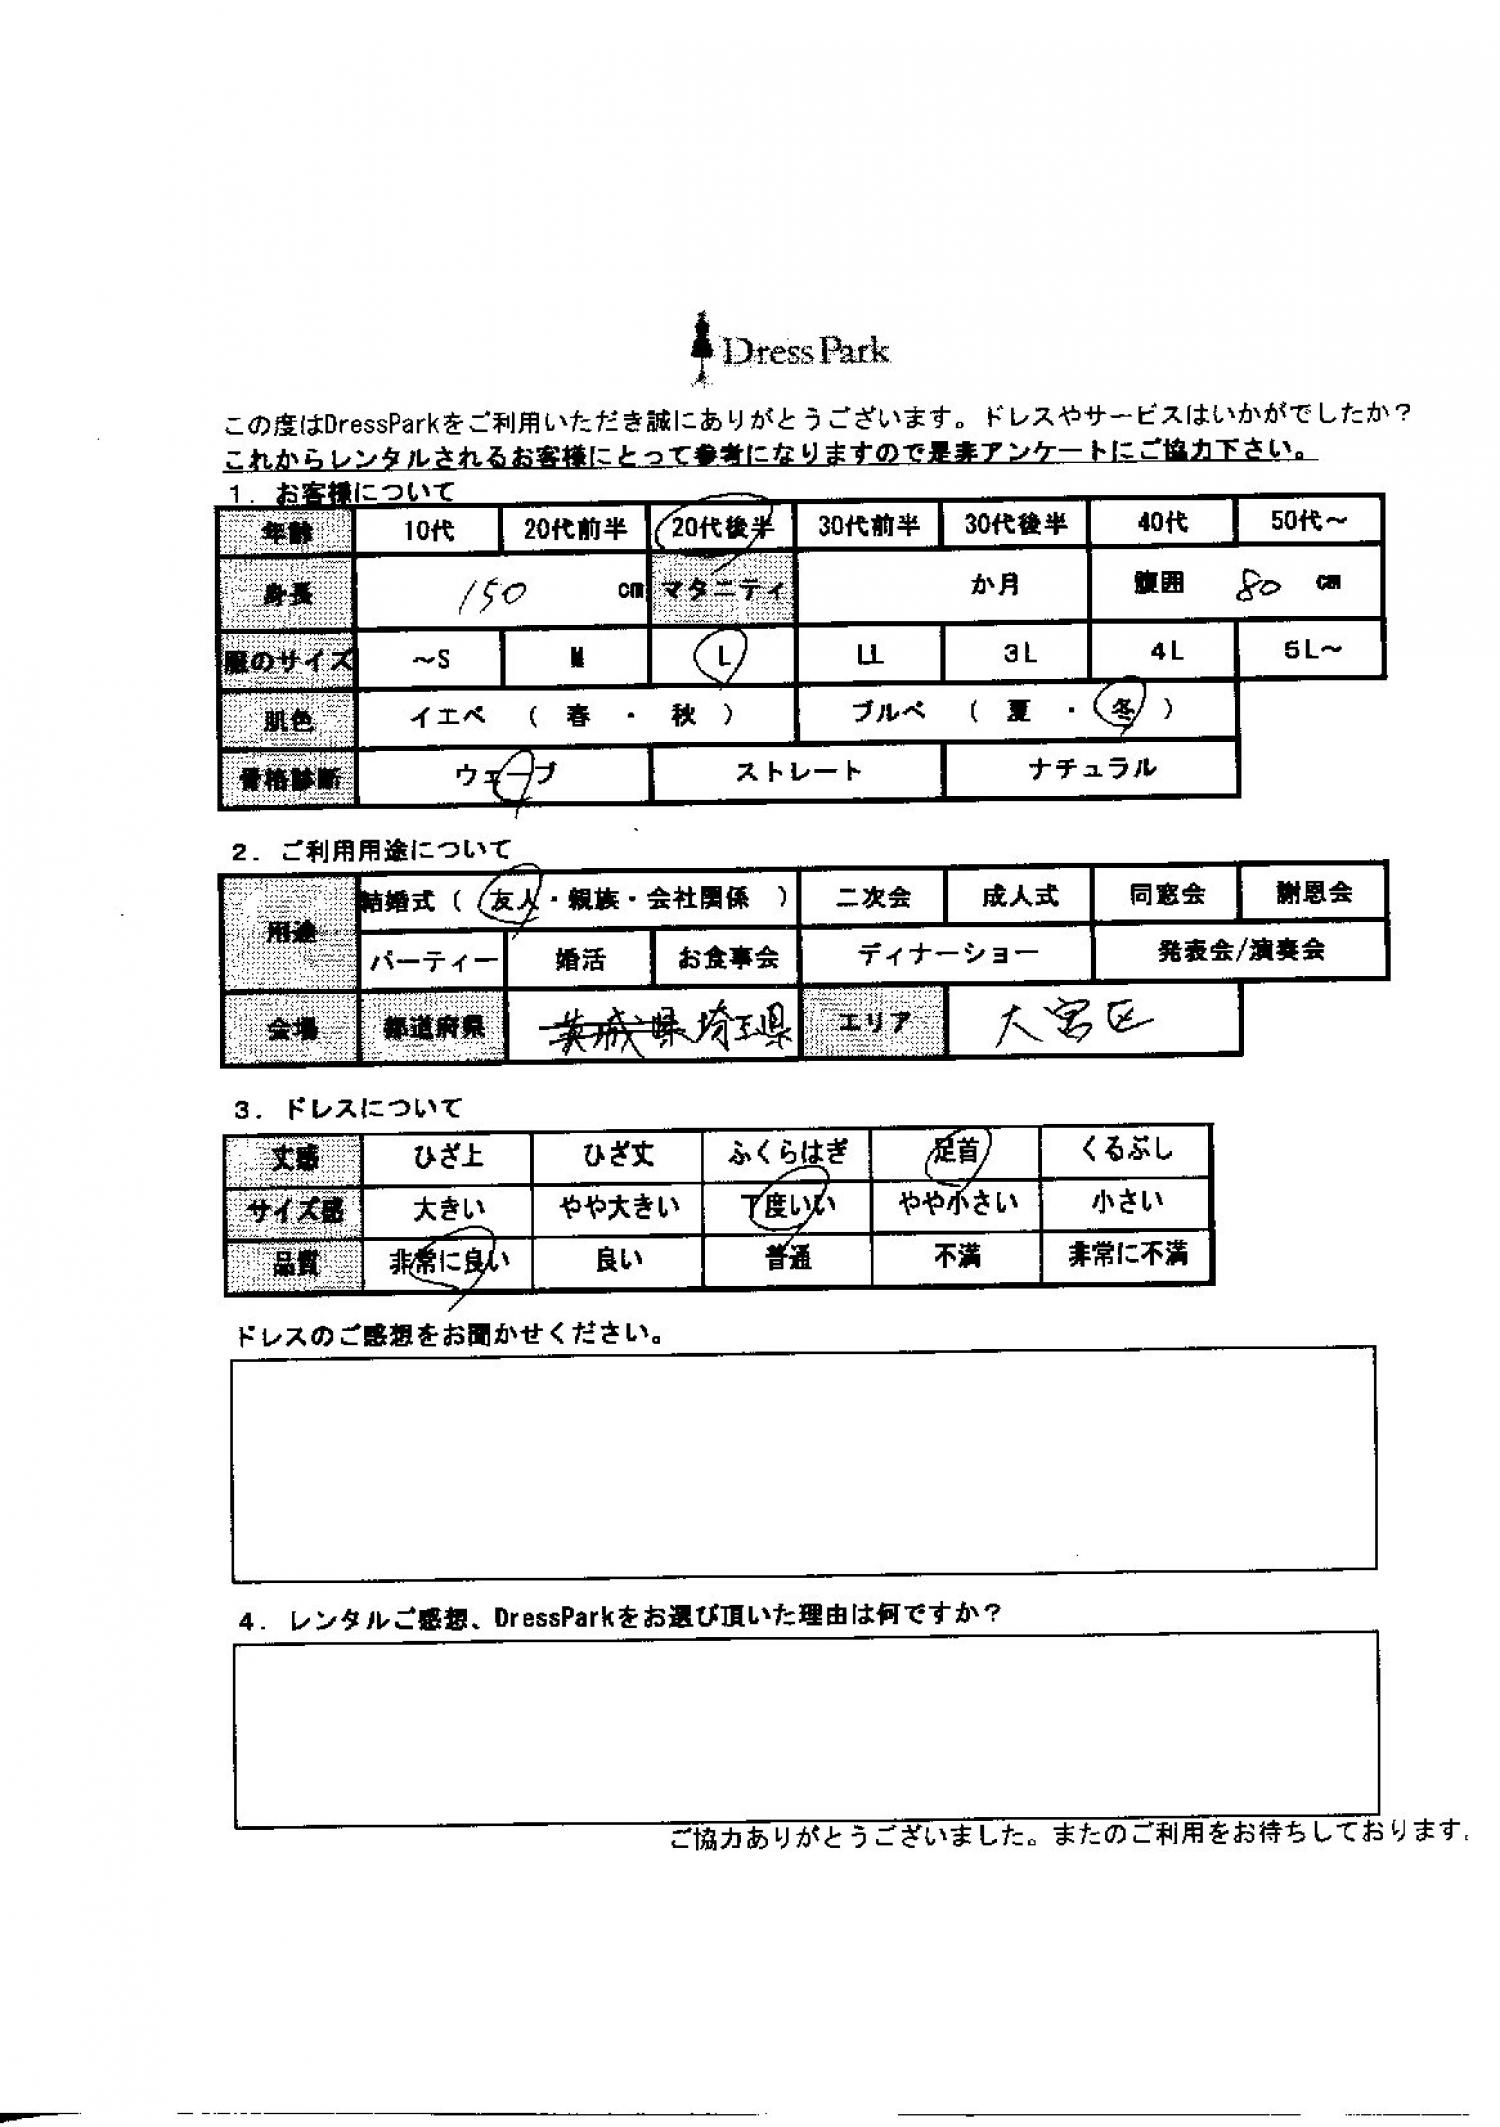 Dress Park
この度はDressParkをご利用いただき誠にありがとうございます。ドレスやサービスはいかがでしたか？
これからレンタルされるお客様にとって参考になりますので是非アンケートにご協力下さい。
1．お客様について
年齢 10代 20代前半 20代後半 30代前半 30代後半 40代 50代～
身長 150 cm マタニティ か月 腹囲 80 cm
服のサイズ ～S M L LL 3L 4L 5L～
肌色 イエベ （ 春 ・ 秋 ） ブルベ （ 夏 ・ 冬 ）
骨格診断 ウェーブ ストレート ナチュラル
2．ご利用用途について
用途 結婚式（ 友人・親族・会社関係 ） 二次会 成人式 同窓会 謝恩会
パーティー 婚活 お食事会 ディナーショー 発表会/演奏会
会場 都道府県 茨城県 埼玉県 エリア 大宮区
3．ドレスについて
丈感 ひざ上 ひざ丈 ふくらはぎ 足首 くるぶし
サイズ感 大きい やや大きい 丁度いい やや小さい 小さい
品質 非常に良い 良い 普通 不満 非常に不満
ドレスのご感想をお聞かせください。
4．レンタルご感想、DressParkをお選び頂いた理由は何ですか？
ご協力ありがとうございました。またのご利用をお待ちしております。